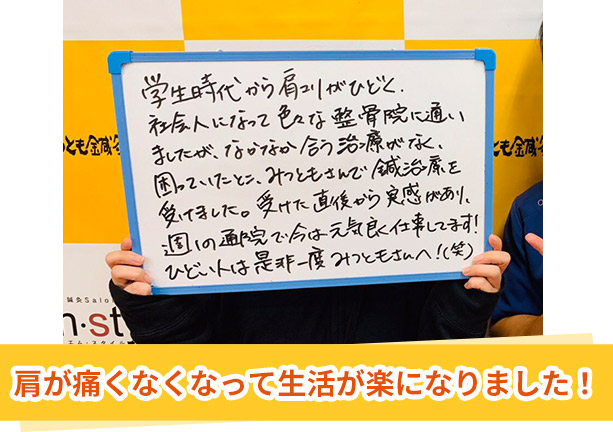 学生時代から肩コリがひどく、
社会人になって色々な整骨院に通い
ましたが、なかなか合う治療がなく、
困っていたところ、みつともさんで鍼治療を
受けました。受けた直後から実感があり、
週1の通院で今は元気良く仕事してます！
ひどい人は是非一度みつともさんへ！(笑)
とも金蔵
鍼灸Salon
肩が痛くなくなって生活が楽になりました！